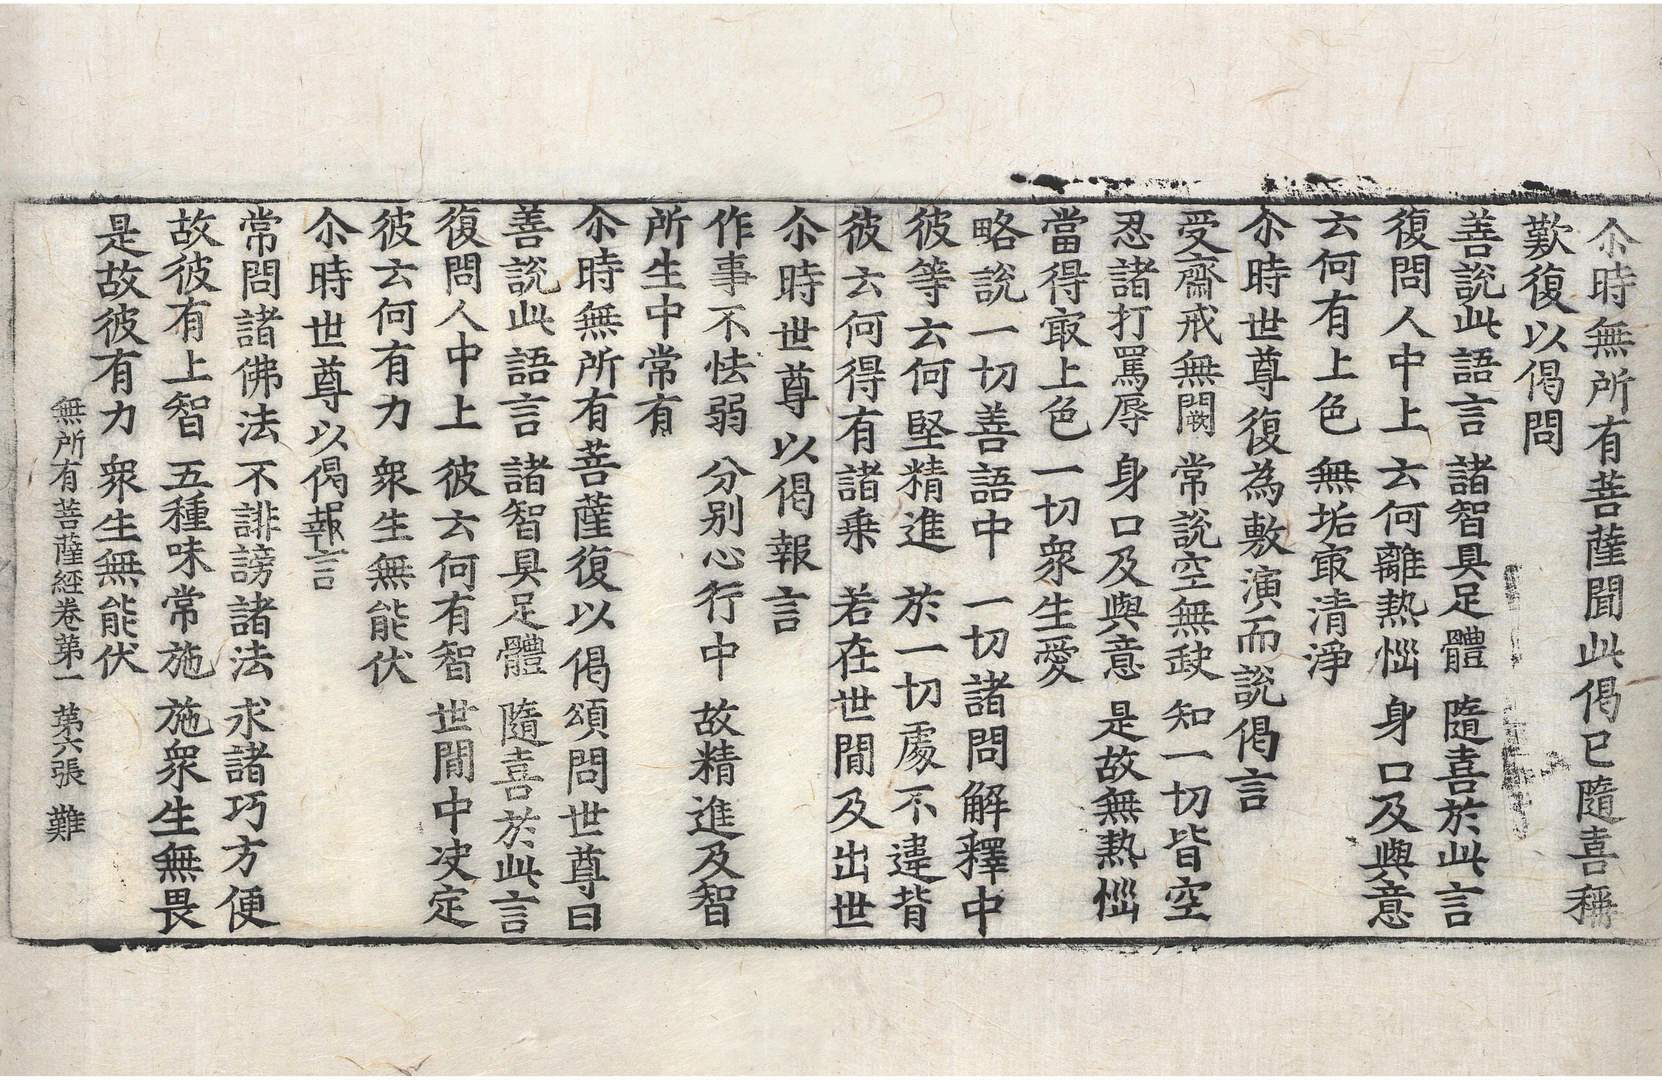 尒時無所有菩薩聞此偈已隨喜稱
歎復以偈問
善說此語言 諸智具足體 隨喜於此言
復問人中上 云何離熱惱 身口及與意
云何有上色 無垢㝡清淨
尒時世尊復為敷演而說偈言
受齋戒無闕 常說空無缺 知一切皆空
忍諸打罵辱 身口及與意 是故無熱惱
當得㝡上色 一切衆生愛
略說一切善語中 一切諸問解釋中
彼等云何堅精進 於一切處不違背
彼云何得有諸乘 若在世間及出世
尒時世尊以偈報言
作事不怯弱 分別心行中 故精進及智
所生中常有
尒時無所有菩薩復以偈頌問世尊曰
善說此語言 諸智具足體 隨喜於此言
復問人中上 彼云何有智 世間中决定
彼云何有力 衆生無能伏
尒時世尊以偈報言
常問諸佛法 不誹謗諸法 求諸巧方便
故彼有上智 五種味常施 施衆生無畏
是故彼有力 衆生無能伏
無所有菩薩經卷第一 第六張 難